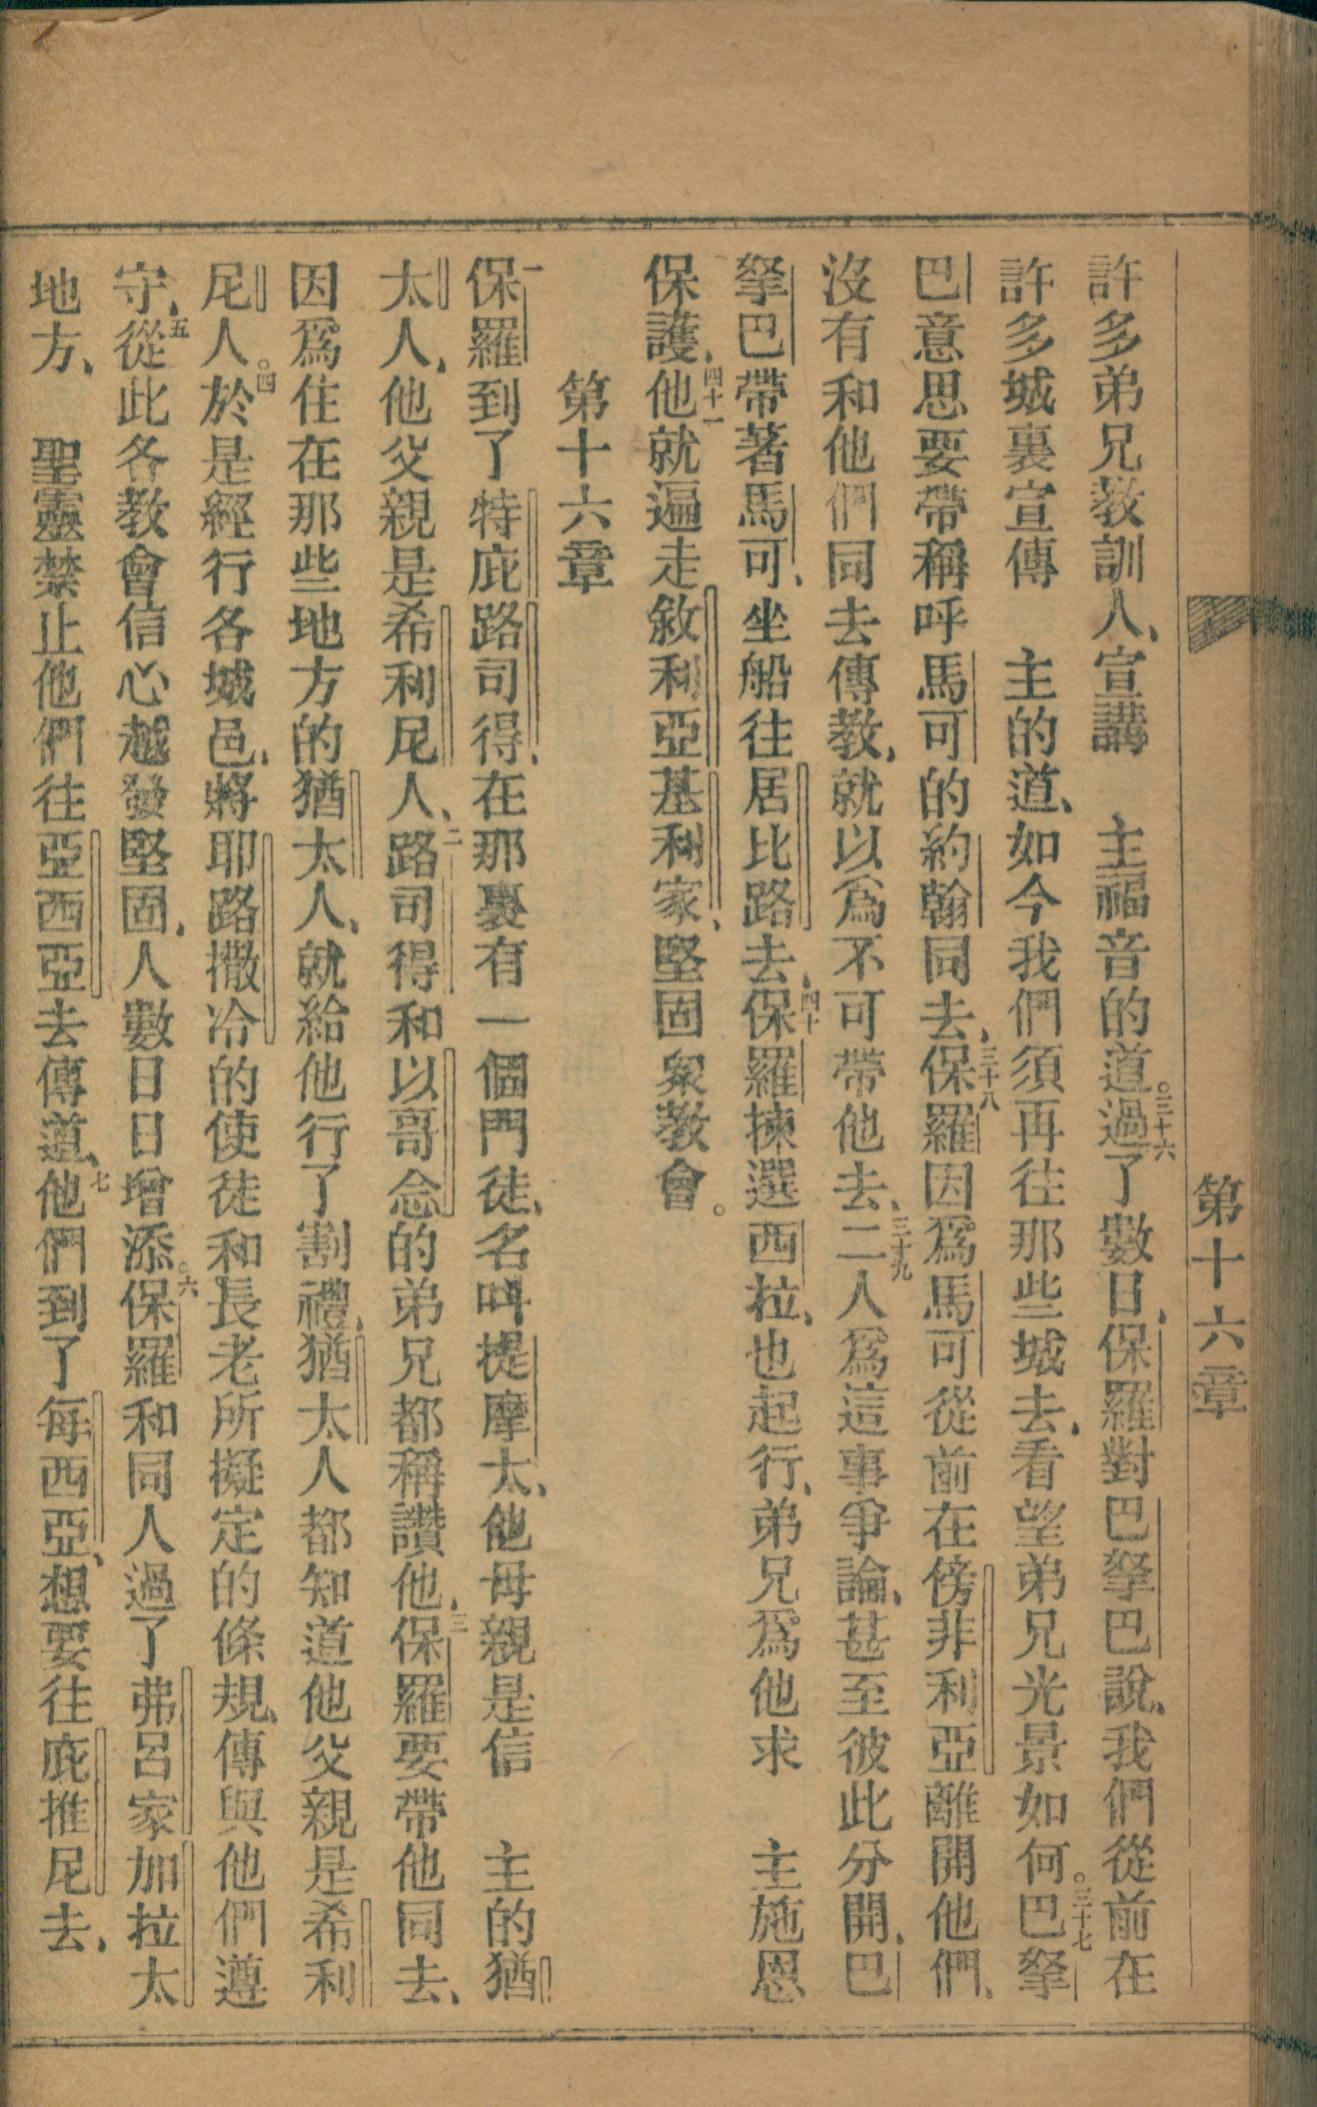 第十六章
許多弟兄教訓人、宣講　主福音的道。三十六過了數日、保羅對巴拏巴說、我們從前在
許多城裏宣傳　主的道、如今我們須再往那些城去、看望弟兄光景如何。三十七巴拏
巴意思要帶稱呼馬可的約翰同去、三十八保羅因爲馬可從前在傍非利亞離開他們、
沒有和他們同去傳教、就以爲不可帶他去、三十九二人爲這事爭論、甚至彼此分開、巴
拏巴帶著馬可、坐船往居比路去、四十保羅揀選西拉、也起行、弟兄爲他求　主施恩
保護、四十一他就遍走敘利亞基利家、堅固衆教會。
第十六章
一保羅到了特庇路司得、在那裏有一個門徒、名叫提摩太、他母親是信　主的猶
太人、他父親是希利尼人、二路司得和以哥念的弟兄都稱讚他、三保羅要帶他同去、
因爲住在那些地方的猶太人、就給他行了割禮、猶太人都知道他父親是希利
尼人。四於是經行各城邑、將耶路撒冷的使徒和長老所擬定的條規、傳與他們遵
守、五從此各教會信心越發堅固、人數日日增添。六保羅和同人過了弗呂家加拉太
地方、　聖靈禁止他們往亞西亞去傳道、七他們到了每西亞、想要往庇推尼去、